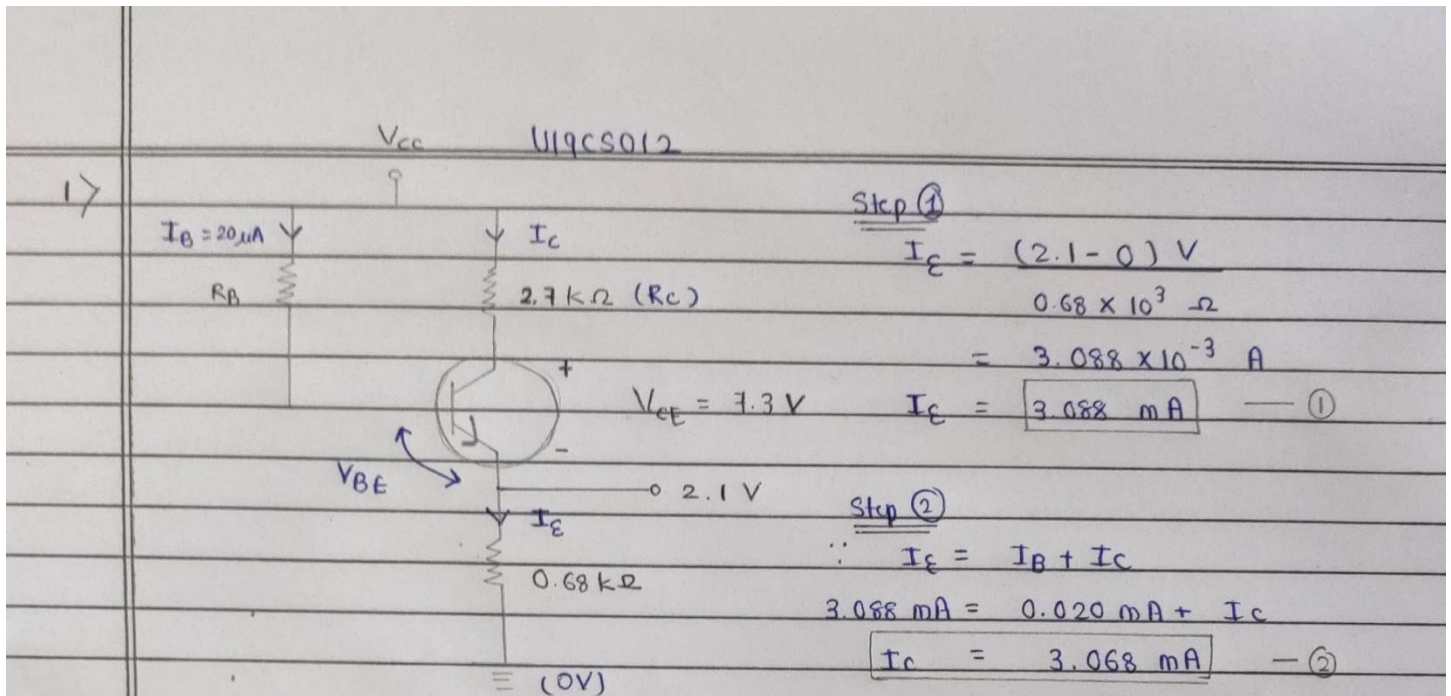 Vcc U19CS012
1>
IB = 20μA
IC
RB
2.7 kΩ (RC)
+
VCE = 7.3 V
-
VBE
2.1 V
IE
0.68 kΩ
(0V)
Step ①
IE = (2.1 - 0) V
0.68 × 10³ Ω
= 3.088 × 10⁻³ A
IE = 3.088 mA — ①
Step ②
∵ IE = IB + IC
3.088 mA = 0.020 mA + IC
IC = 3.068 mA — ②